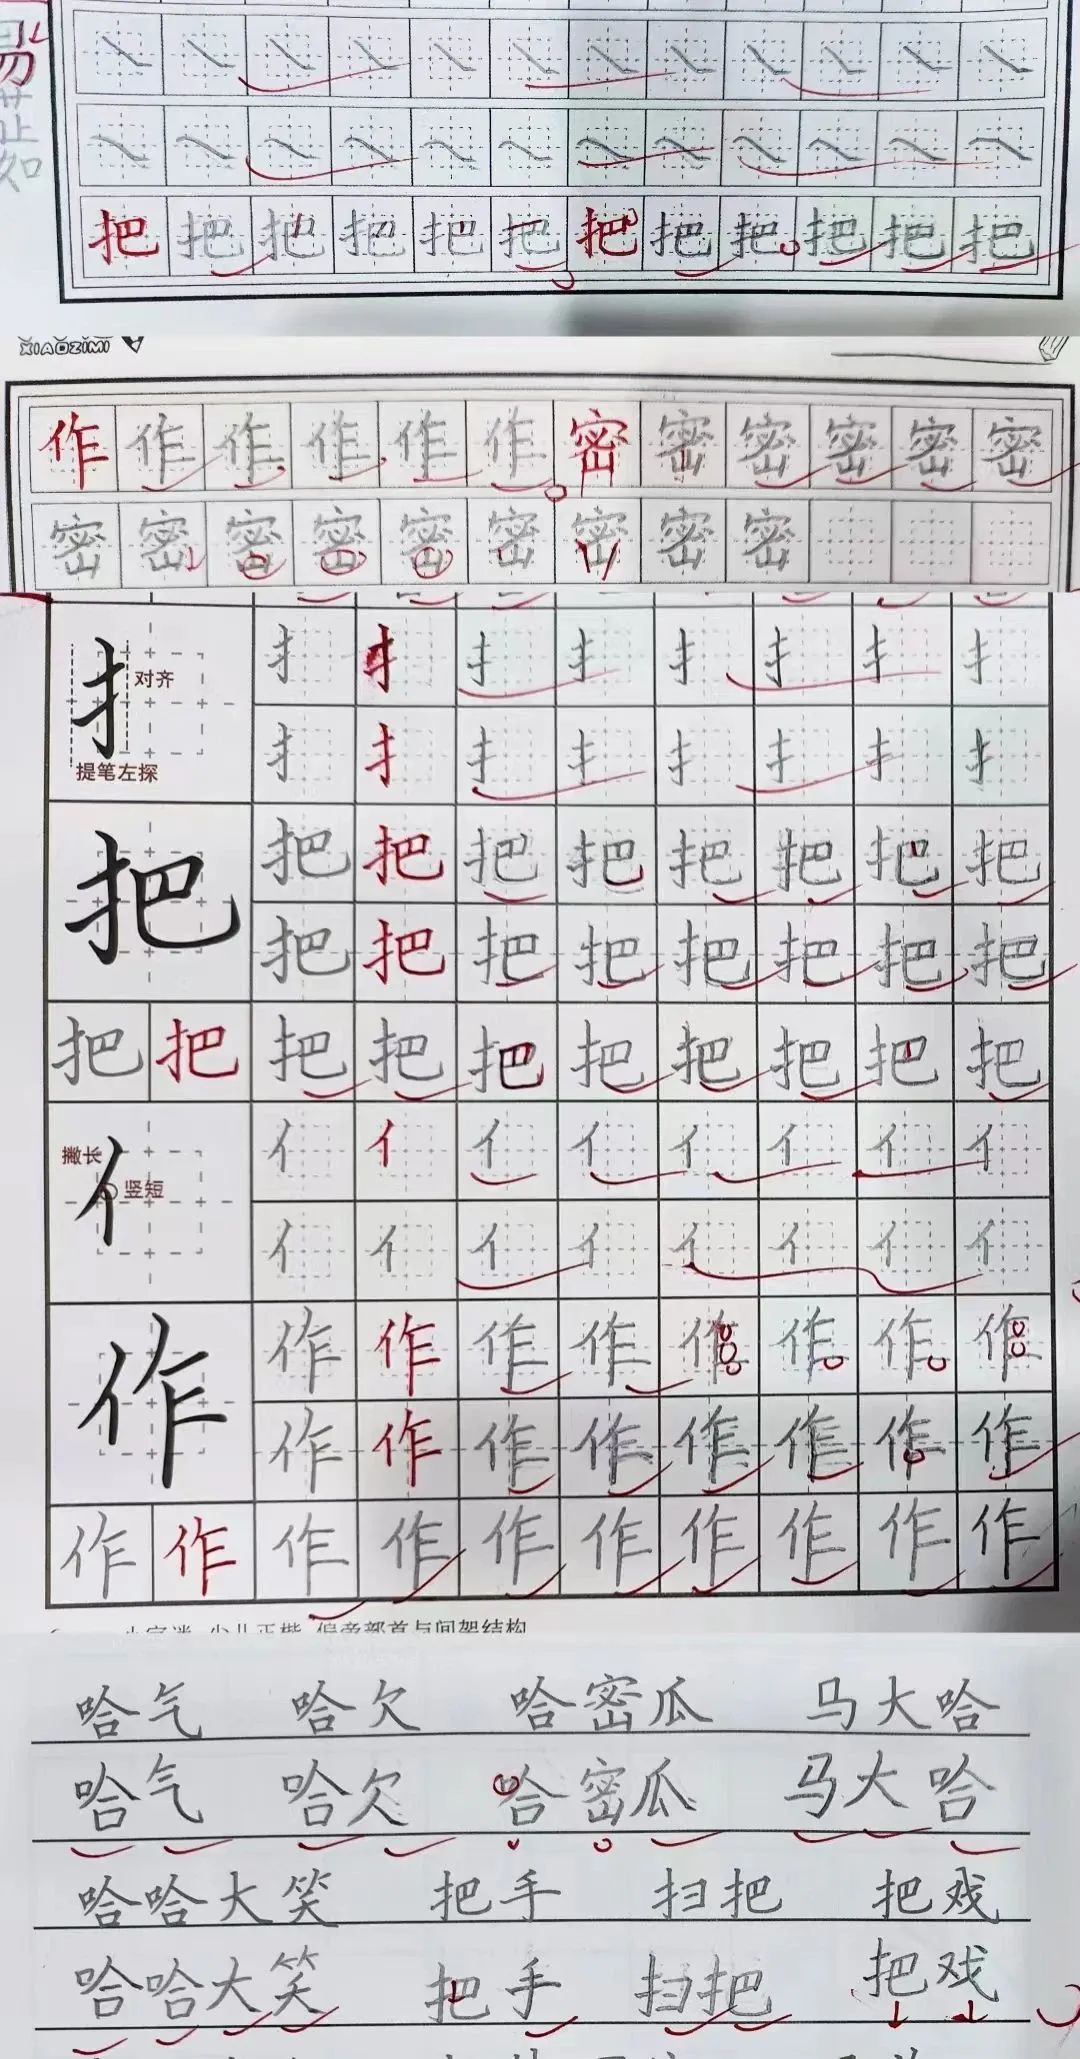 把 把 把 把 把 把 把 把 把 把 把 把
XIAOZIMI
作 作 作 作 作 作 密 密 密 密 密 密
密 密 密 密 密 密 密 密 密
扌 对齐 扌 扌 扌 扌 扌 扌 扌 扌
提笔左探 扌 扌 扌 扌 扌 扌 扌 扌
把 把 把 把 把 把 把 把 把
把 把 把 把 把 把 把 把
把 把 把 把 把 把 把 把 把 把
撇长 亻 竖短 亻 亻 亻 亻 亻 亻 亻 亻
亻 亻 亻 亻 亻 亻 亻 亻
作 作 作 作 作 作 作 作 作
作 作 作 作 作 作 作 作
作 作 作 作 作 作 作 作 作 作
偏旁部首与间架结构
哈气 哈欠 哈密瓜 马大哈
哈气 哈欠 哈密瓜 马大哈
哈哈大笑 把手 扫把 把戏
哈哈大笑 把手 扫把 把戏